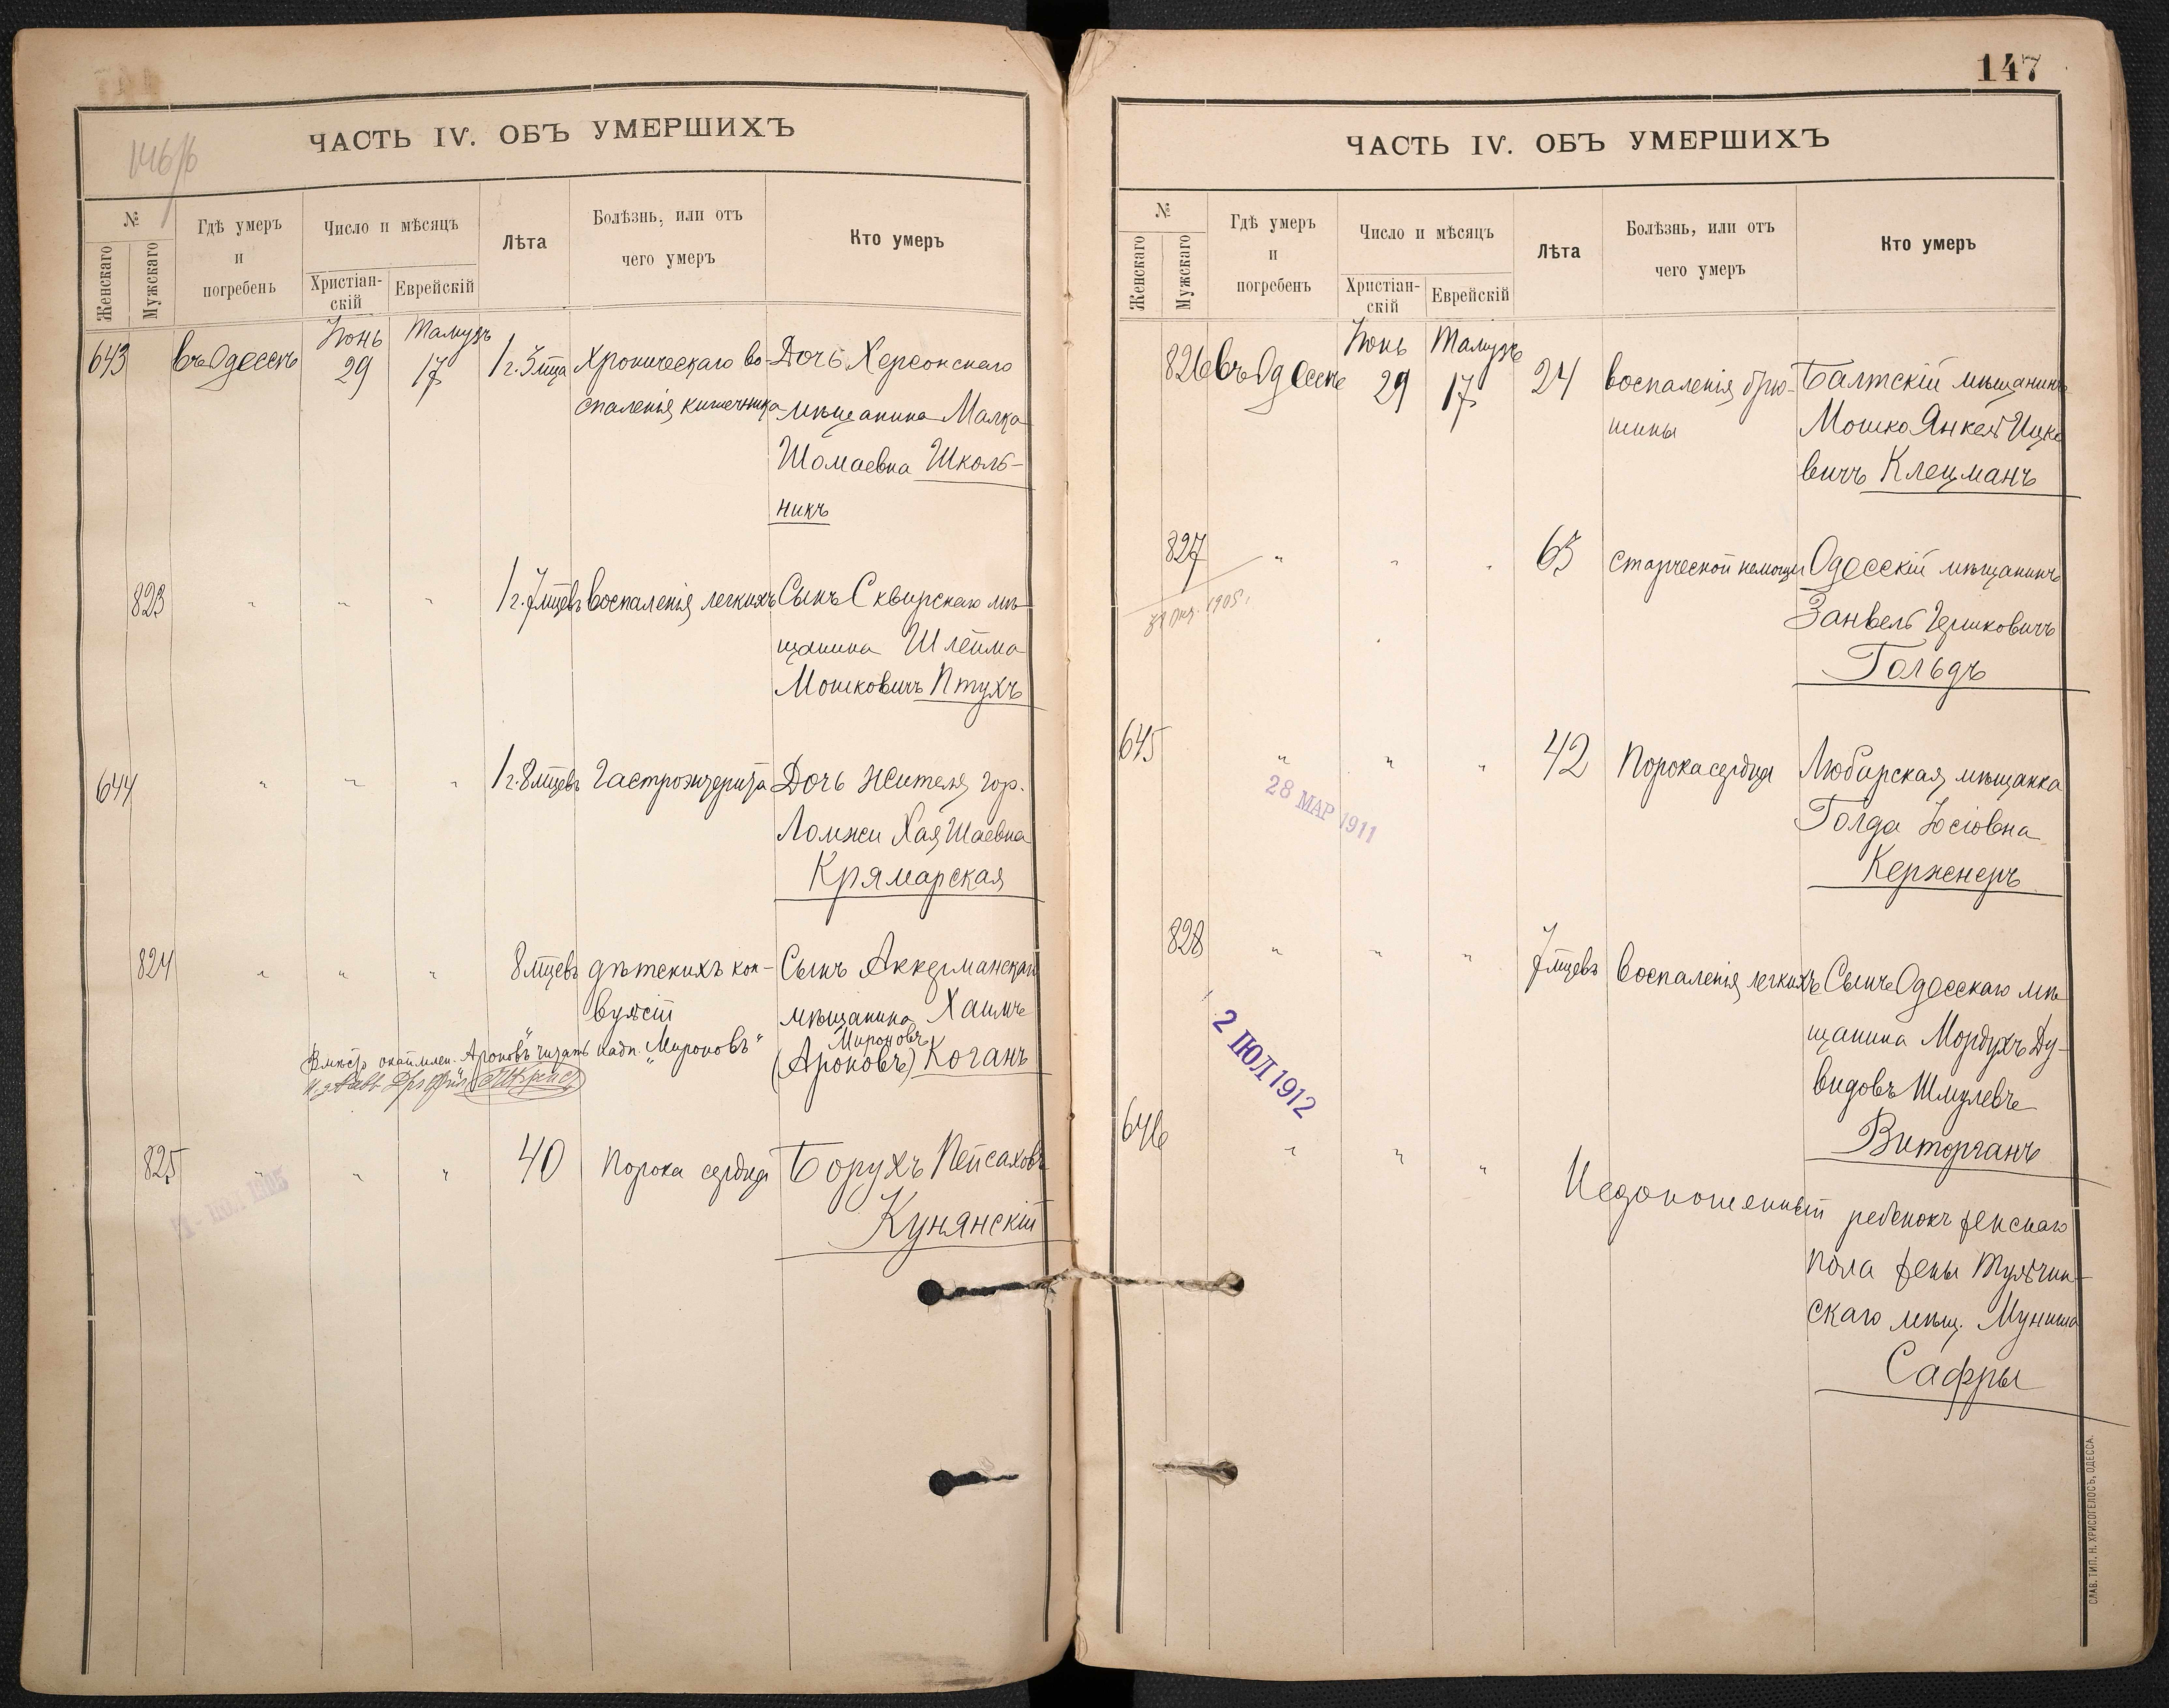 146/б
ЧАСТЬ IV. ОБЪ УМЕРШИХЪ
№
Женскаго
Мужскаго
Гдѣ умеръ
и
погребенъ
Число и мѣсяцъ
Христіан-
скій
Еврейскій
Лѣта
Болѣзнь, или отъ
чего умеръ
Кто умеръ
Іюнь Тамузъ
643 въ Одессѣ 29 17 1 г. 3 мца Хроническаго во- Дочь Херсонскаго
спаленія кишечника мѣщанина Малка
Шомаевна Школь-
никъ
823 " " " 1 г. 7 мцевъ воспаленія легкихъ Сынъ Сквирскаго мѣ-
щанина Шлейма
Мошковичъ Птухъ
644 " " " 1 г. 8 мцевъ Гастроэнтерита Дочь жителя гор.
Ломжи Хая Шаевна
Крямарская
824 " " " 8 мцевъ дѣтскихъ кон- Сынъ Аккерманскаго
вульсій мѣщанина Хаимъ
Мироновъ
(Ароновъ) Коганъ
Вмѣсто окаймлен. "Ароновъ" читать надп. "Мироновъ"
825 " " " 40 Порока сердца Борухъ Пейсаховъ
Кунянскій
ІЮЛ 1905
147
ЧАСТЬ IV. ОБЪ УМЕРШИХЪ
№
Женскаго
Мужскаго
Гдѣ умеръ
и
погребенъ
Число и мѣсяцъ
Христіан-
скій
Еврейскій
Лѣта
Болѣзнь, или отъ
чего умеръ
Кто умеръ
Іюнь Тамузъ
826 въ Одессѣ 29 17 24 воспаленія брю- Балтскій мѣщанинъ
шины Мошко Янкель Ицко
вичъ Клецманъ
827 " " " 65 старческой немощи Одесскій мѣщанинъ
1905 г.
Занвель Гершковичъ
Гольдъ
645 " " " 42 Порока сердца Любарская мѣщанка
28 МАР 1911
Голда Іосіовна
Керженеръ
828 " " " 7 мцевъ воспаленія легкихъ Сынъ Одесскаго мѣ
щанина Мордухъ Ду-
видовъ Шмулевъ
Виторганъ
2 ІЮЛ 1912
646 " " " Недоношенный ребенокъ женскаго
пола жены Тульчин-
скаго мѣщ. Муниша
Сафры
СЛАВ. ТИП. Н. ХРИСОГЕЛОСЪ, ОДЕССА.